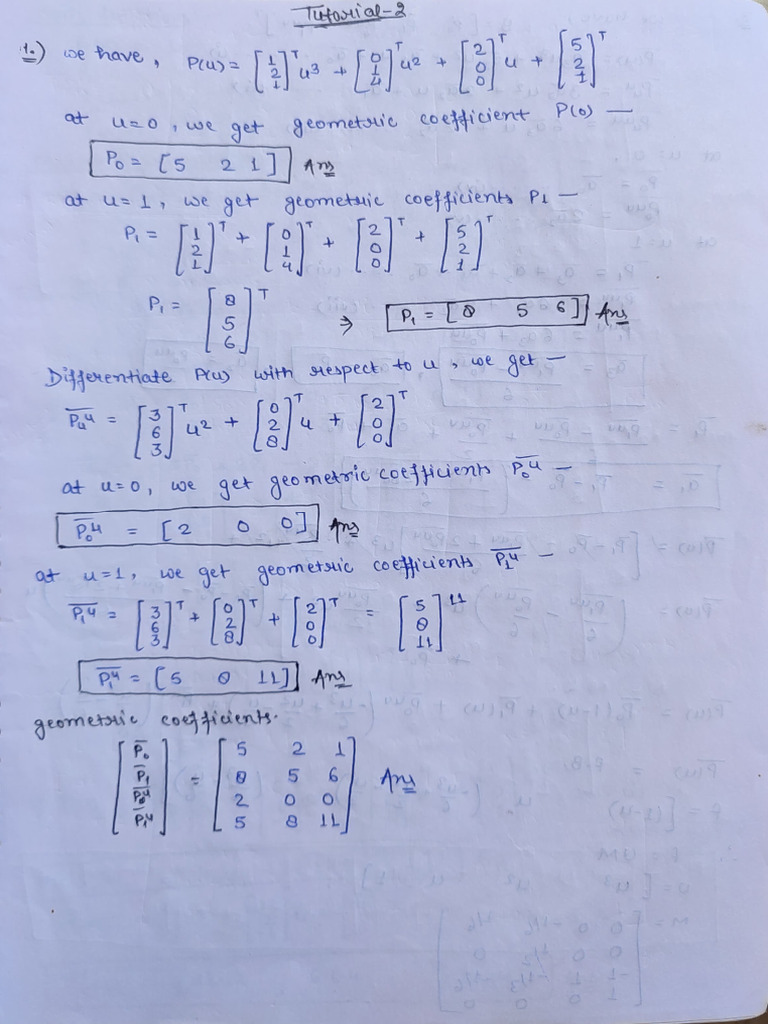 Tutorial-2
1.) we have, P(u) = [1 2 1]^T u³ + [0 1 4]^T u² + [2 0 0]^T u + [5 2 1]^T
at u=0, we get geometric coefficient P(0) —
P₀ = [5 2 1] Ans
at u=1, we get geometric coefficients P1 —
P₁ = [1 2 1]^T + [0 1 4]^T + [2 0 0]^T + [5 2 1]^T
P₁ = [8 5 6]^T ⇒ P₁ = [8 5 6] Ans
Differentiate P(u) with respect to u, we get —
P₄ᵘ = [3 6 3]^T u² + [0 2 8]^T u + [2 0 0]^T
at u=0, we get geometric coefficients P₀ᵘ —
P₀ᵘ = [2 0 0] Ans
at u=1, we get geometric coefficients P₁ᵘ —
P₁ᵘ = [3 6 3]^T + [0 2 8]^T + [2 0 0]^T = [5 8 11]^11
P₁ᵘ = [5 8 11] Ans
geometric coefficients.
[P₀ P₁ P₀ᵘ P₁ᵘ] = [5 2 1
8 5 6
2 0 0
5 8 11] Ans